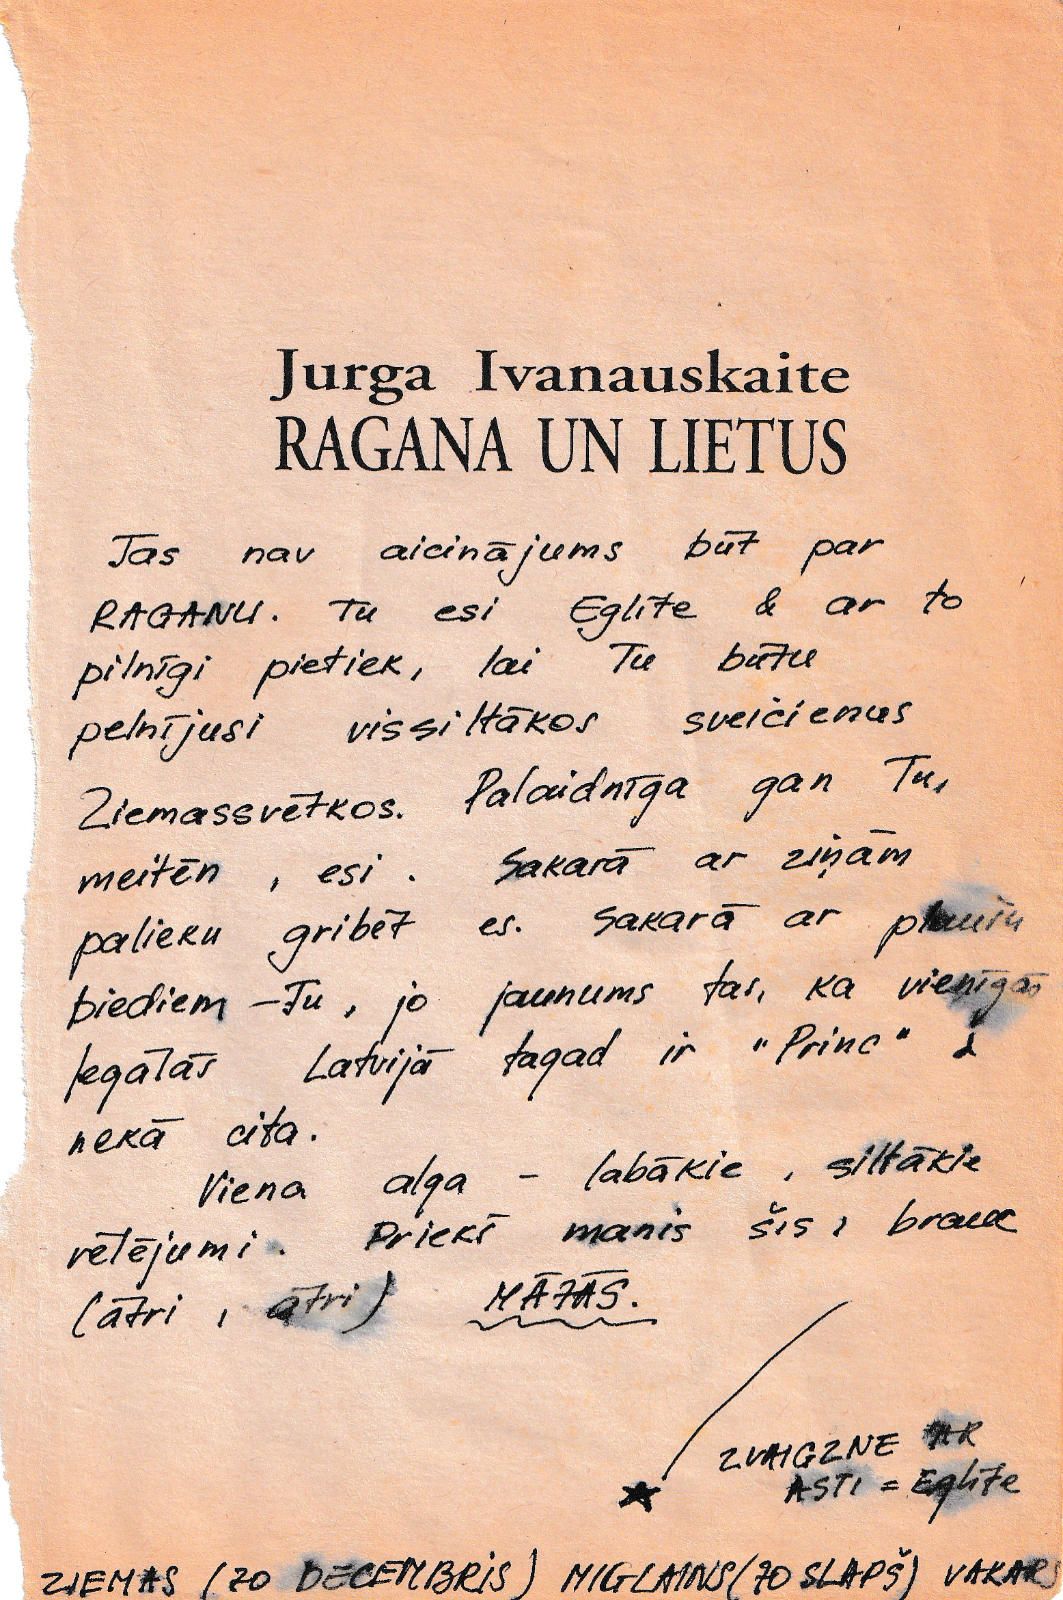 Jurga Ivanauskaite
RAGANA UN LIETUS
Tas nav aicinājums būt par
RAGANU. Tu esi Eglīte & ar to
pilnīgi pietiek, lai Tu būtu
pelnījusi vissiltākos sveicienus
Ziemassvētkos. Palaidnīga gan Tu,
meitēn, esi. Sakarā ar ziņām
palieku gribēt es. Sakarā ar plaušu
biediem – Tu, jo jaunums tas, ka vienīgās
legālās Latvijā tagad ir "Princ" &
nekā cita.
Viena alga – labākie, siltākie
vēlējumi. Priekš manis šis, brauc
(ātri, ātri) MĀJĀS.
ZVAIGZNE AR
ASTI = Eglīte
ZIEMAS (20 DECEMBRIS) MIGLAINS ( SLAPŠ) VAKARS